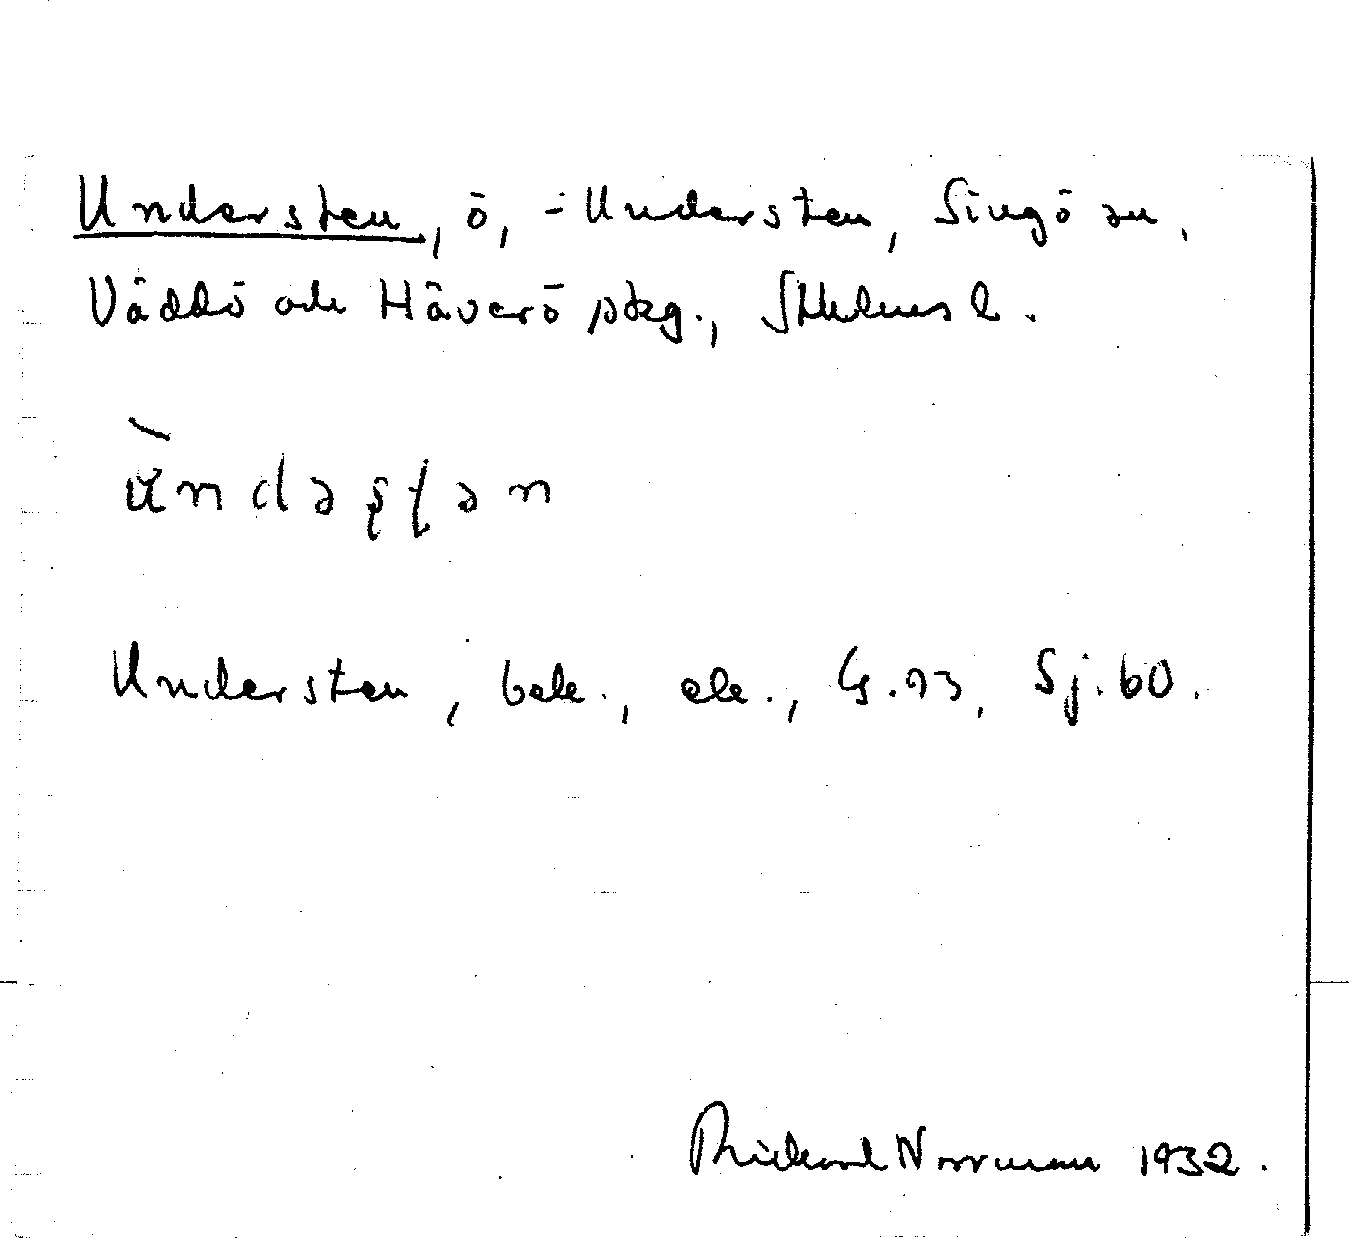 Understen, ö, - Understen, Singö sn.
Väddö och Häverö skg., Sthlms l.
ùndəʂʈən
Understen, bek., ek., G. 93, Sj. 60.
Rickard Norrman 1932.